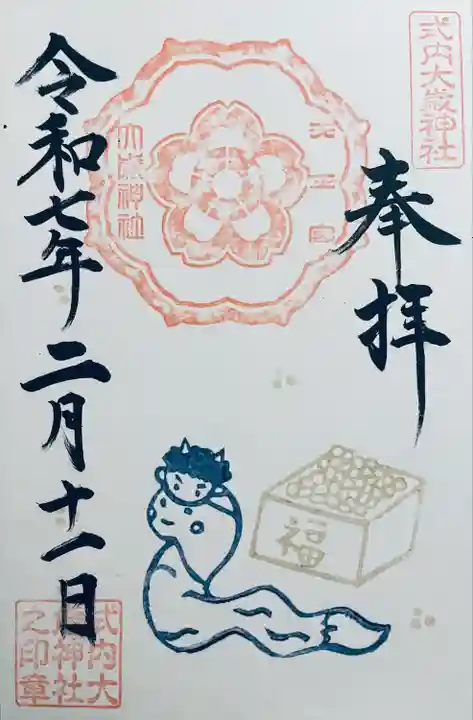 式内大歳神社
奉拝
大歳神社
福
令和七年二月十一日
式内大
歳神社
之印章